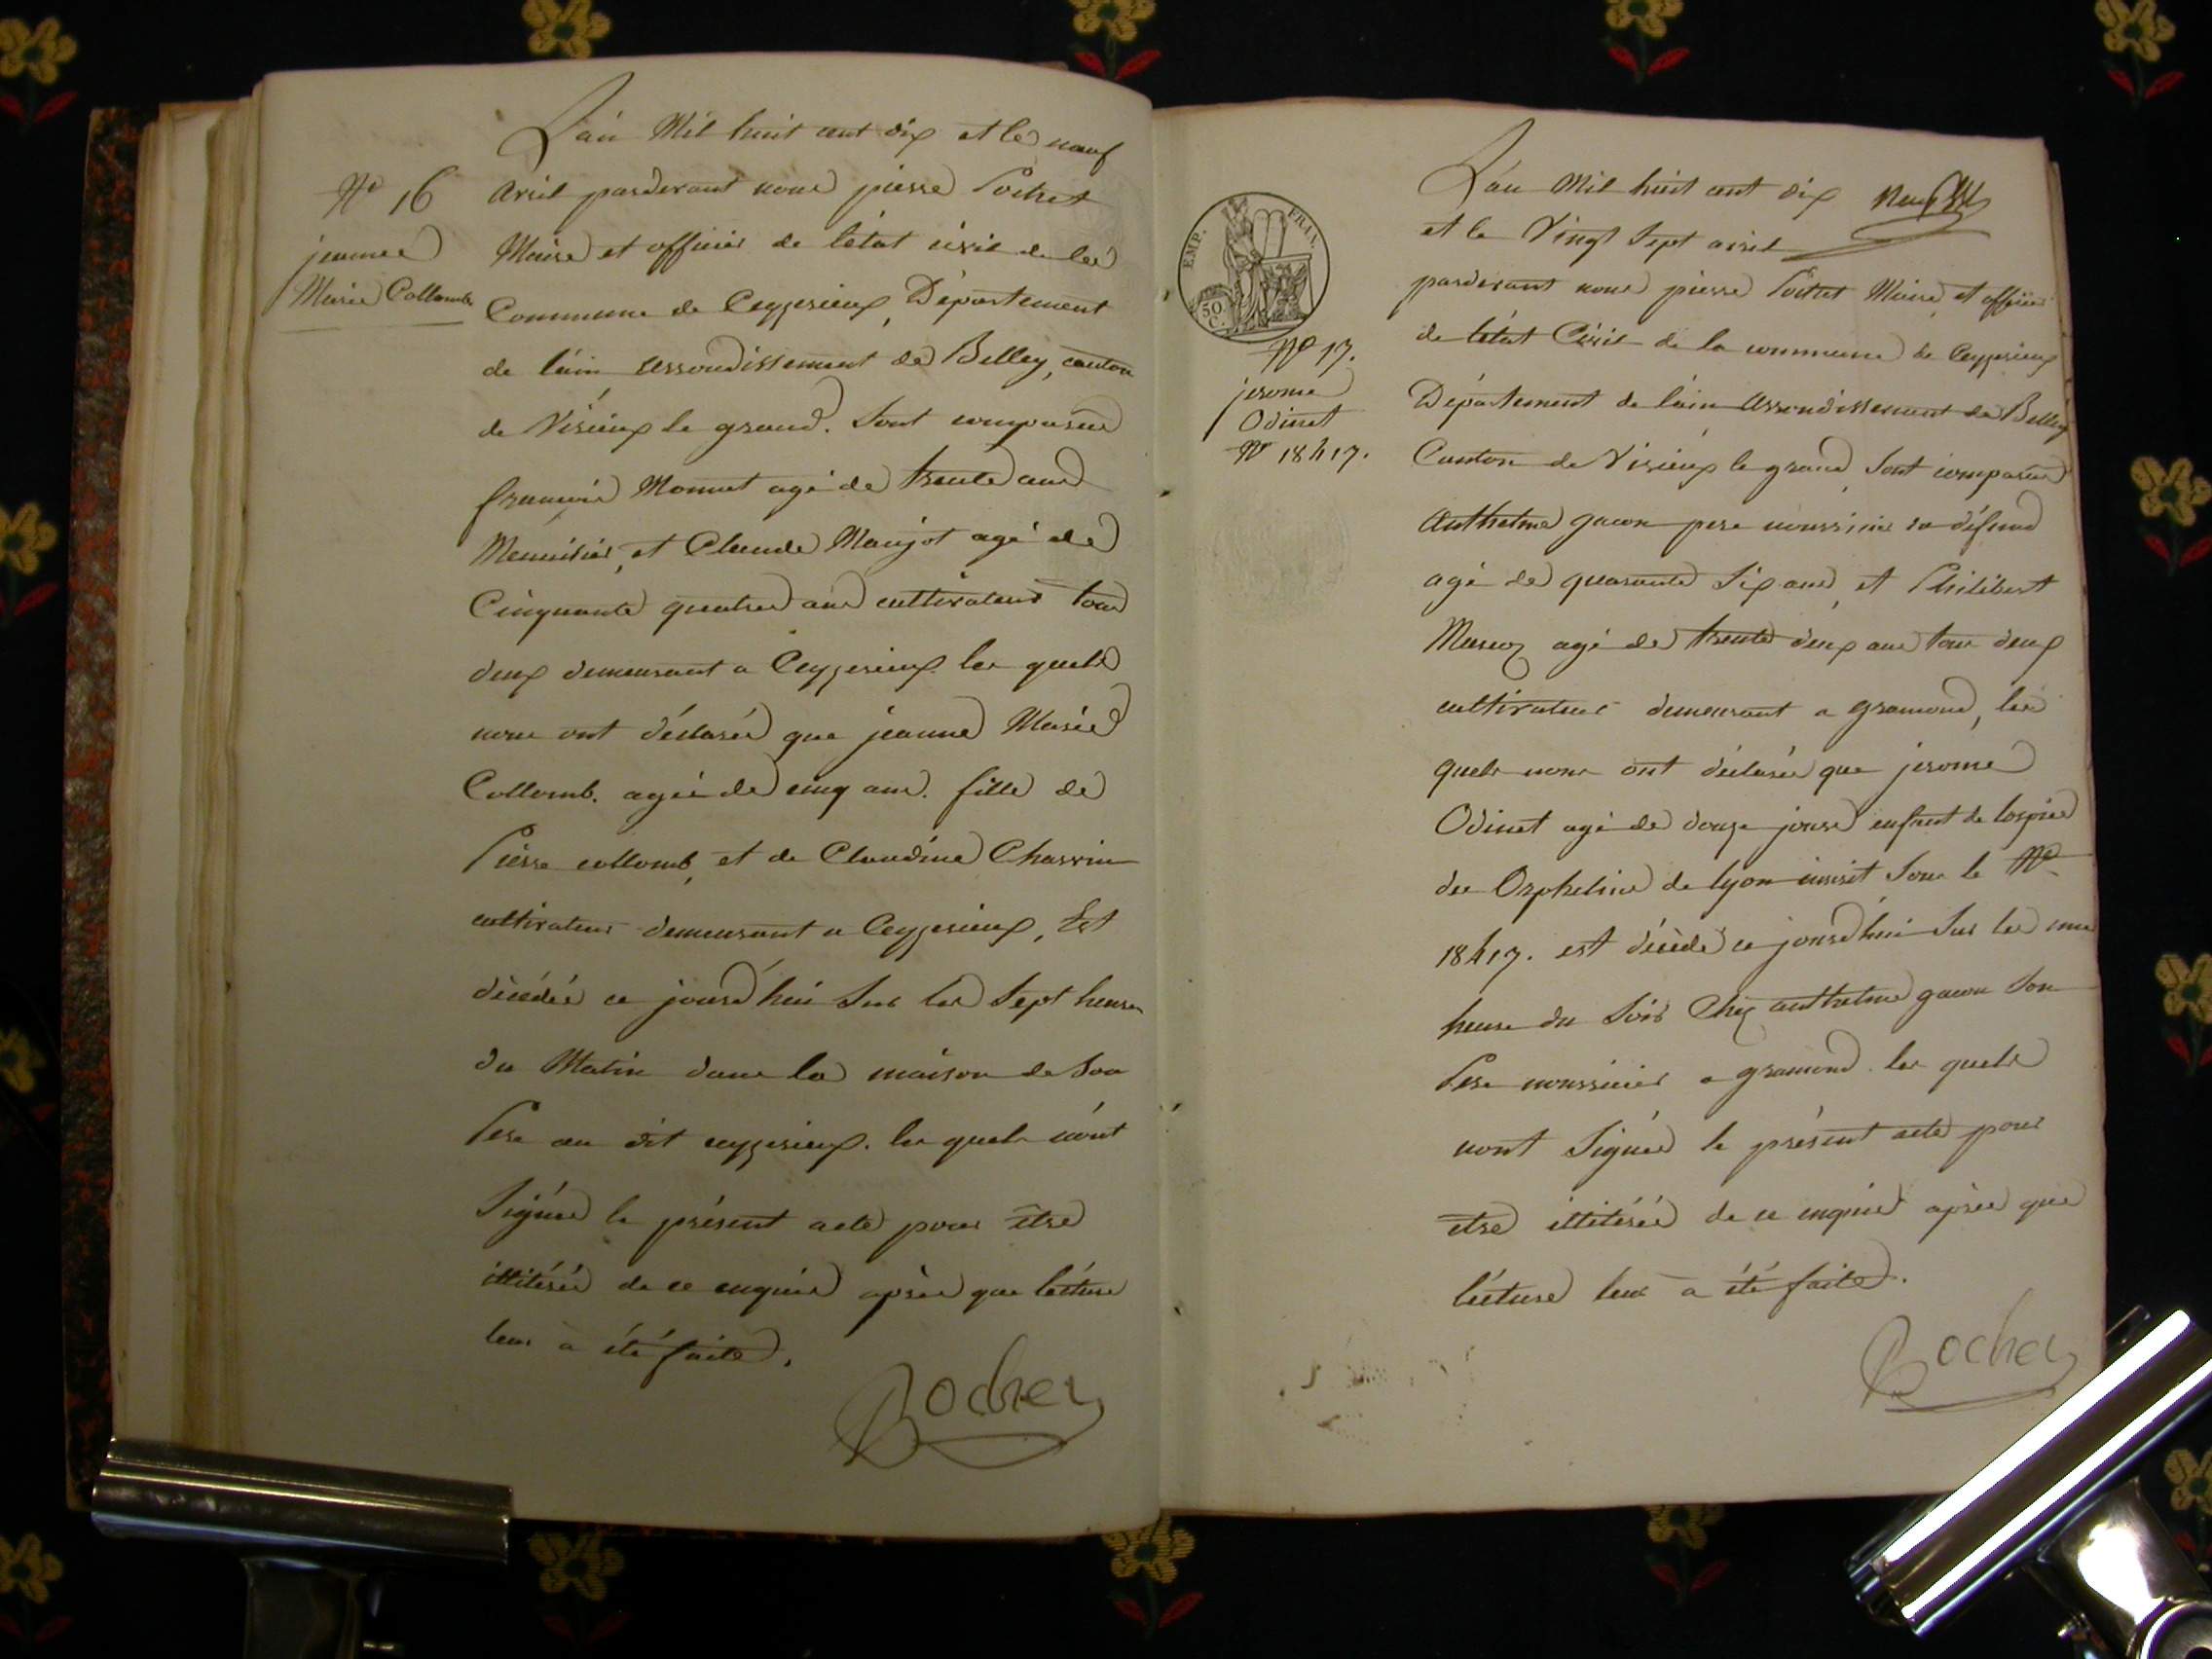 L'an Mil huit cent dix et le neuf
N° 16
avril pardevant nous pierre Pochet
jeanne
Maire et officier de l'état civil de la
Marie Collomb
Commune de Ceyzerieux, Département
de l'ain arrondissement de Belley, canton
de Virieux le grand. Sont comparus
françois Monnet agé de trente ans
Menuisier, et Claude Maujot agé de
Cinquante quatre ans cultivateurs tous
deux demeurant a Ceyzerieux. les quels
nous ont déclarés que jeanne Marie
Collomb. agée de cinq ans. fille de
Pierre collomb, et de Claudine Charvin
cultivateurs demeurant a Ceyzerieux, Est
décédée ce jourd'hui Sur les Sept heures
du Matin dans la maison de Son
Pere au dit ceyzerieux. les quels n'ont
Signés le présent acte pour être
illitérés de ce enquis après que lécture
leur à été faite.
Rocher
L'an Mil huit cent dix
et le Vingt Sept avril
EMP. FRAN.
50. C.
pardevant nous pierre Pochet Maire, et officier
de l'état Civil de la commune de Ceyzerieux
N° 17.
Département de l'ain arrondissement de Belley
jerome
Odinet
Canton de Virieux le grand, Sont comparus
N° 18417.
Anthelme gacon pere nourricier du défunt
agé de quarante Six ans, et Philibert
agé de trente deux ans tous deux
cultivateurs demeurant a gramond, les
quels nous ont déclarés que jerome
Odinet agé de douze jours enfant de lospice
des Orphelins de lyon inscrit Sous le N°
18417. est décédé ce jourd'hui Sur les une
heure du Soir Chez anthelme gacon Son
Pere nourricier a gramond. les quels
nont Signés le présent acte pour
etre illitérés de ce enquis après que
lécture leur à été faite.
Rocher